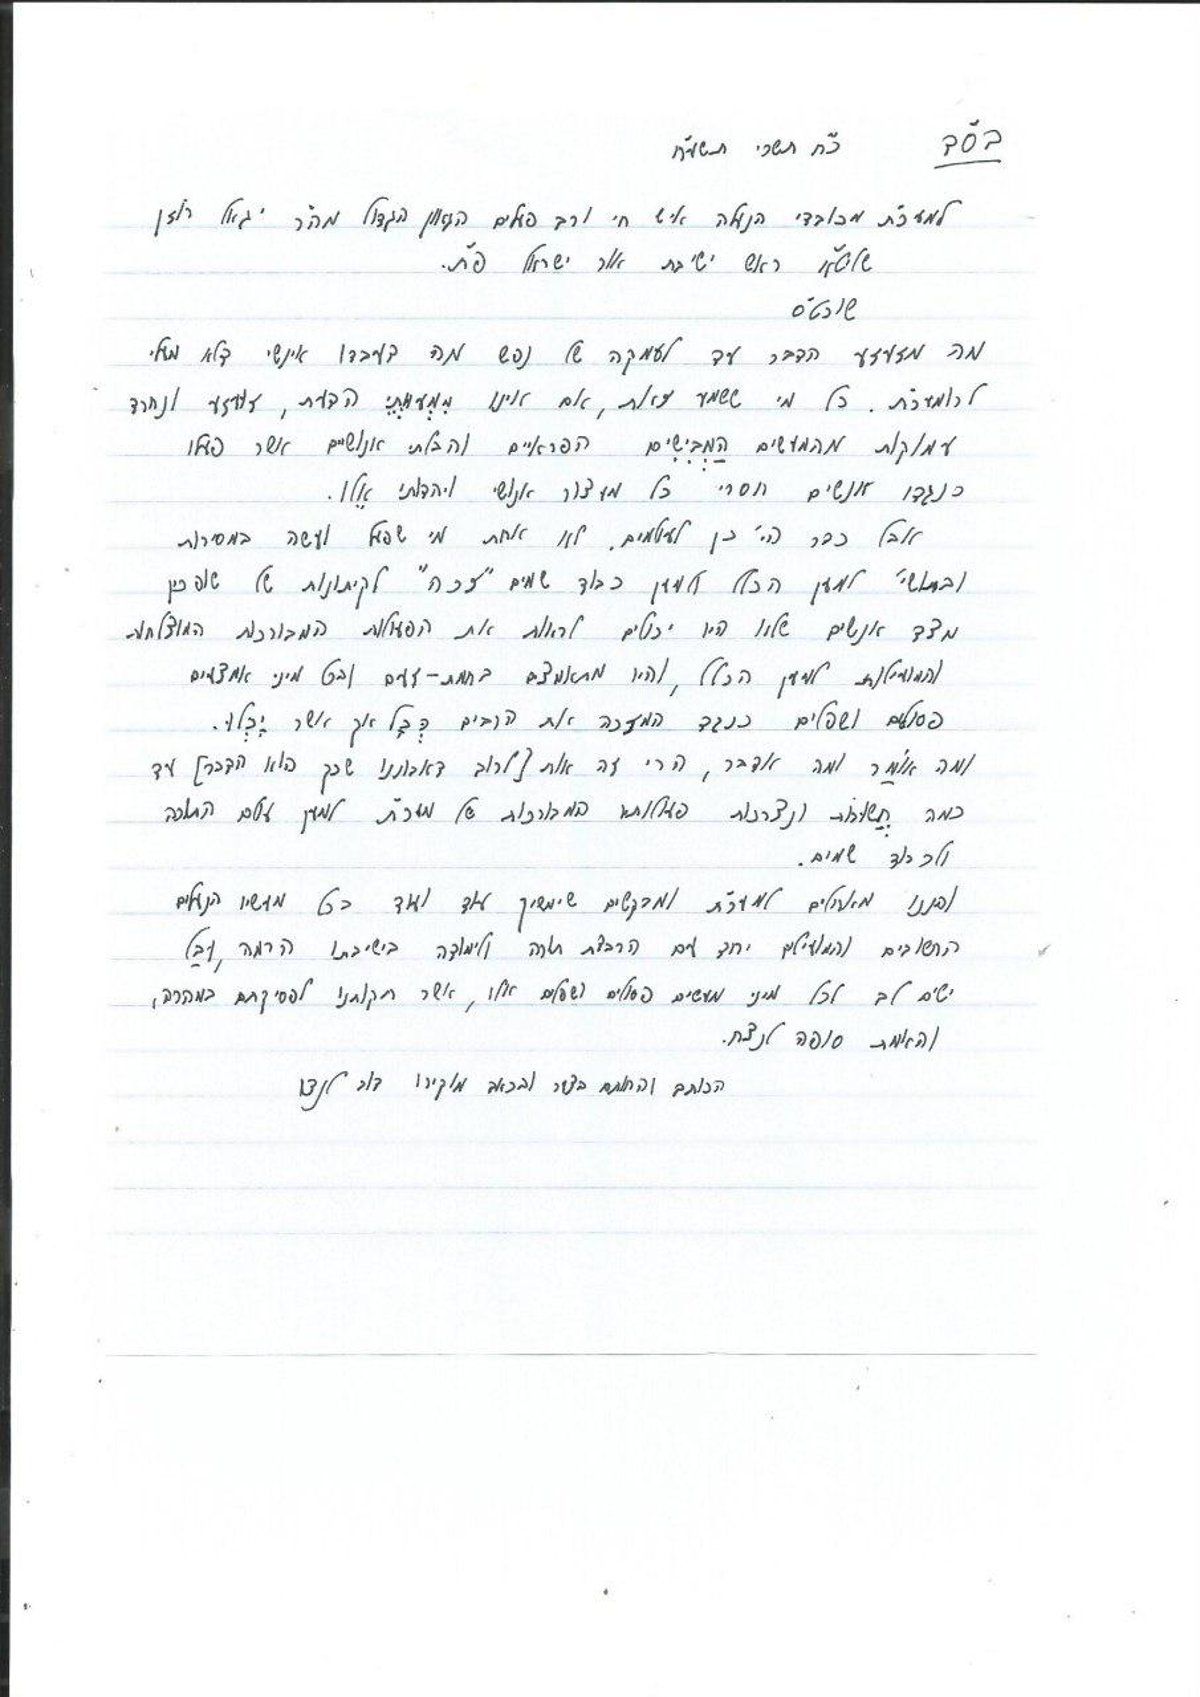 בס"ד כ"ח תשרי תשע"ח
למע"כ מכובדי הנעלה איש חי ורב פעלים הגאון הגדול מה"ר יגאל רוזן
שליט"א ראש ישיבת אור ישראל פ"ת.
שוכט"ס
מה מזעזע הדבר עד לעמקה של נפש מה דעבדו אינשי דלא מעלי
לרומע"כ. כל מי ששמע זאת, אם אינו מִמְעִוּתֵי הבעת, זועזע ונחרד
עמוקות מהמעשים הַמְבִישִׁים הפראיים והבלתי אנושיים אשר פעלו
כנגדו אנשים חסרי כל מעצור אנושי ויהדותי אֵלו.
אבל כבר הי' כן לעולמים. לא אחת מי שפעל ועשה במסירות
למען הכלל ולמען כבוד שמים "זכה" לקיתונות של שופכין
מצד אנשים שלא היו יכולים לראות את הפעולות המבורכות המוצלחות
והמועילות למען הכלל, והיו מתאמצים בחמת-זעם ובכל מיני אמצעים
פסולים ושפלים כנגד המזכה את הרבים בְּכָל אך אשר יָכְלוּ.
ומה אוֹמַר ומה אדבר, הרי זה אות [לרוב דאבוננו שכך הוא הדבר] עד
כמה חֲשׁוּבוֹת ונצרכות פעולותיו המבורכות של מע"כ למען עולם התורה
ולכבוד שמים.
והננו מאחלים למע"כ ומבקשים שימשיך עוד ועוד בכל מעשיו הנעלים
החשובים והמועילים יחד עם הרבצת תורה ולימודה בישיבתו הרמה, וְבַל
ישים לב לכל מיני מעשים פסולים ושפלים אלו, אשר תקותנו לפסיקתם במהרה,
והאמת סופה לנצח.
הכותב והחותם בצער ובכאב מוקירו דוב לנדו